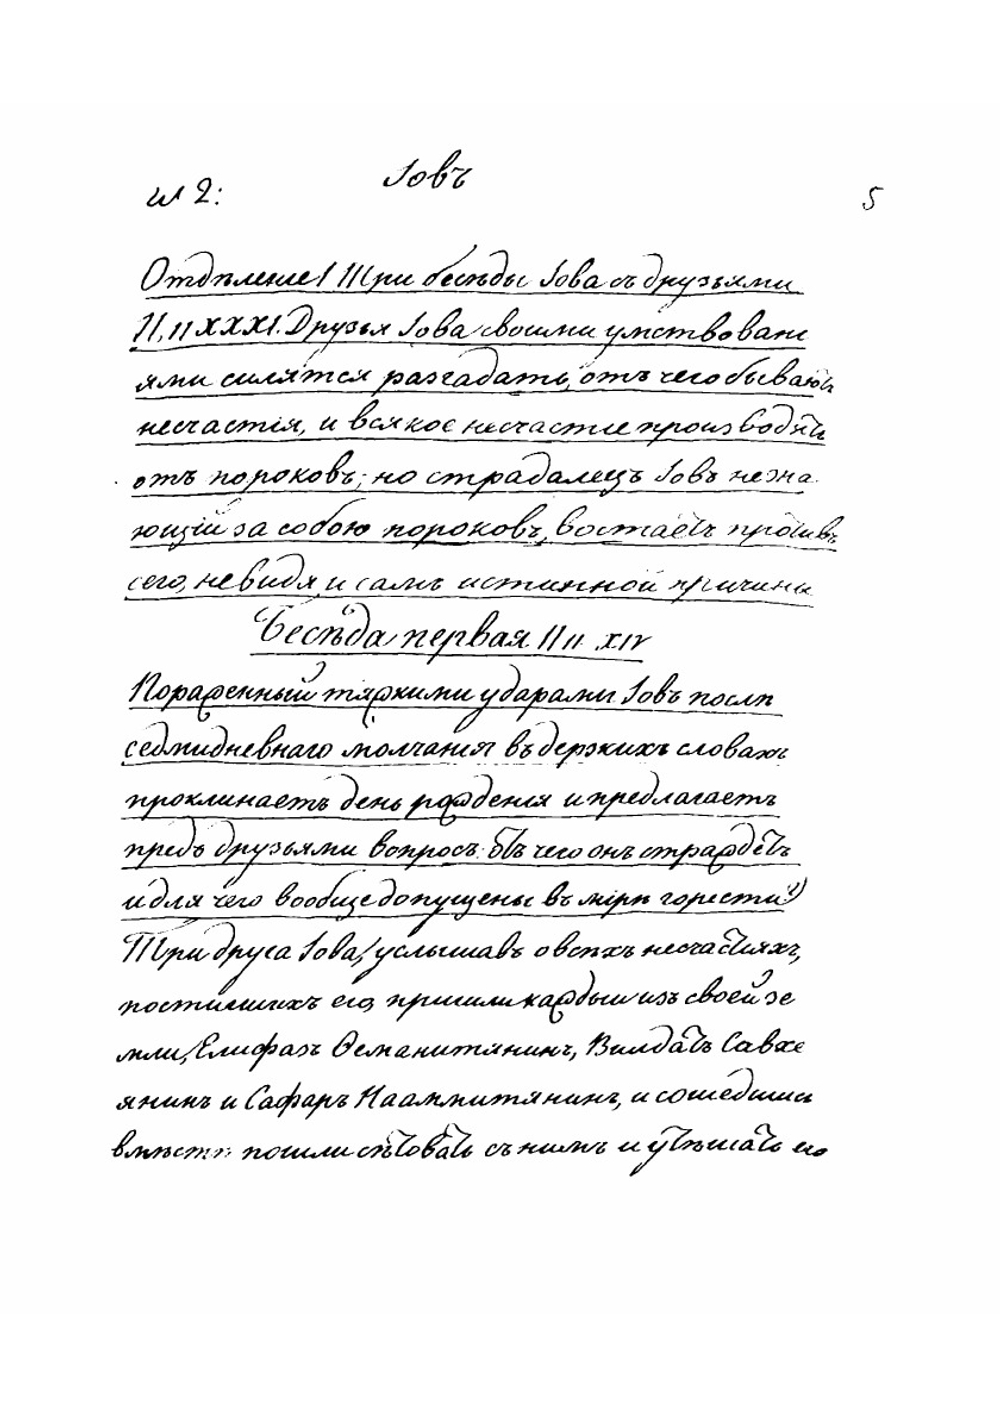 Іовъ
гл 2:
5
Отдѣленіе I Три бесѣды Іова съ друзьями
II, 11 XXXI. Друзья Іова своими умствовані
ями силятся разгадать, отъ чего бываютъ
несчастія, и всякое несчастіе производятъ
отъ пороковъ; но страдалецъ Іовъ незна
ющій за собою пороковъ, востаетъ противъ
сего, невидя и самъ истинной причины
Бесѣда первая II 11 XIV
Пораженный тяжкими ударами Іовъ послѣ
седмидневнаго молчанія въ дерзкихъ словахъ
проклинаетъ день рожденія и предлагаетъ
предъ друзьями вопросъ: отъ чего онъ страждетъ
и для чего вообще допущены въ мірѣ горести?)
Три друга Іова, услышавъ о всѣхъ несчастіяхъ,
постигшихъ его, пришли каждый изъ своей зе
мли, Елифазъ Ѳеманитянинъ, Вилдатъ Савхе
янинъ и Сафаръ Наамитянинъ, и сошедшись
вмѣстѣ пошли сѣтовать съ нимъ и утѣшать его